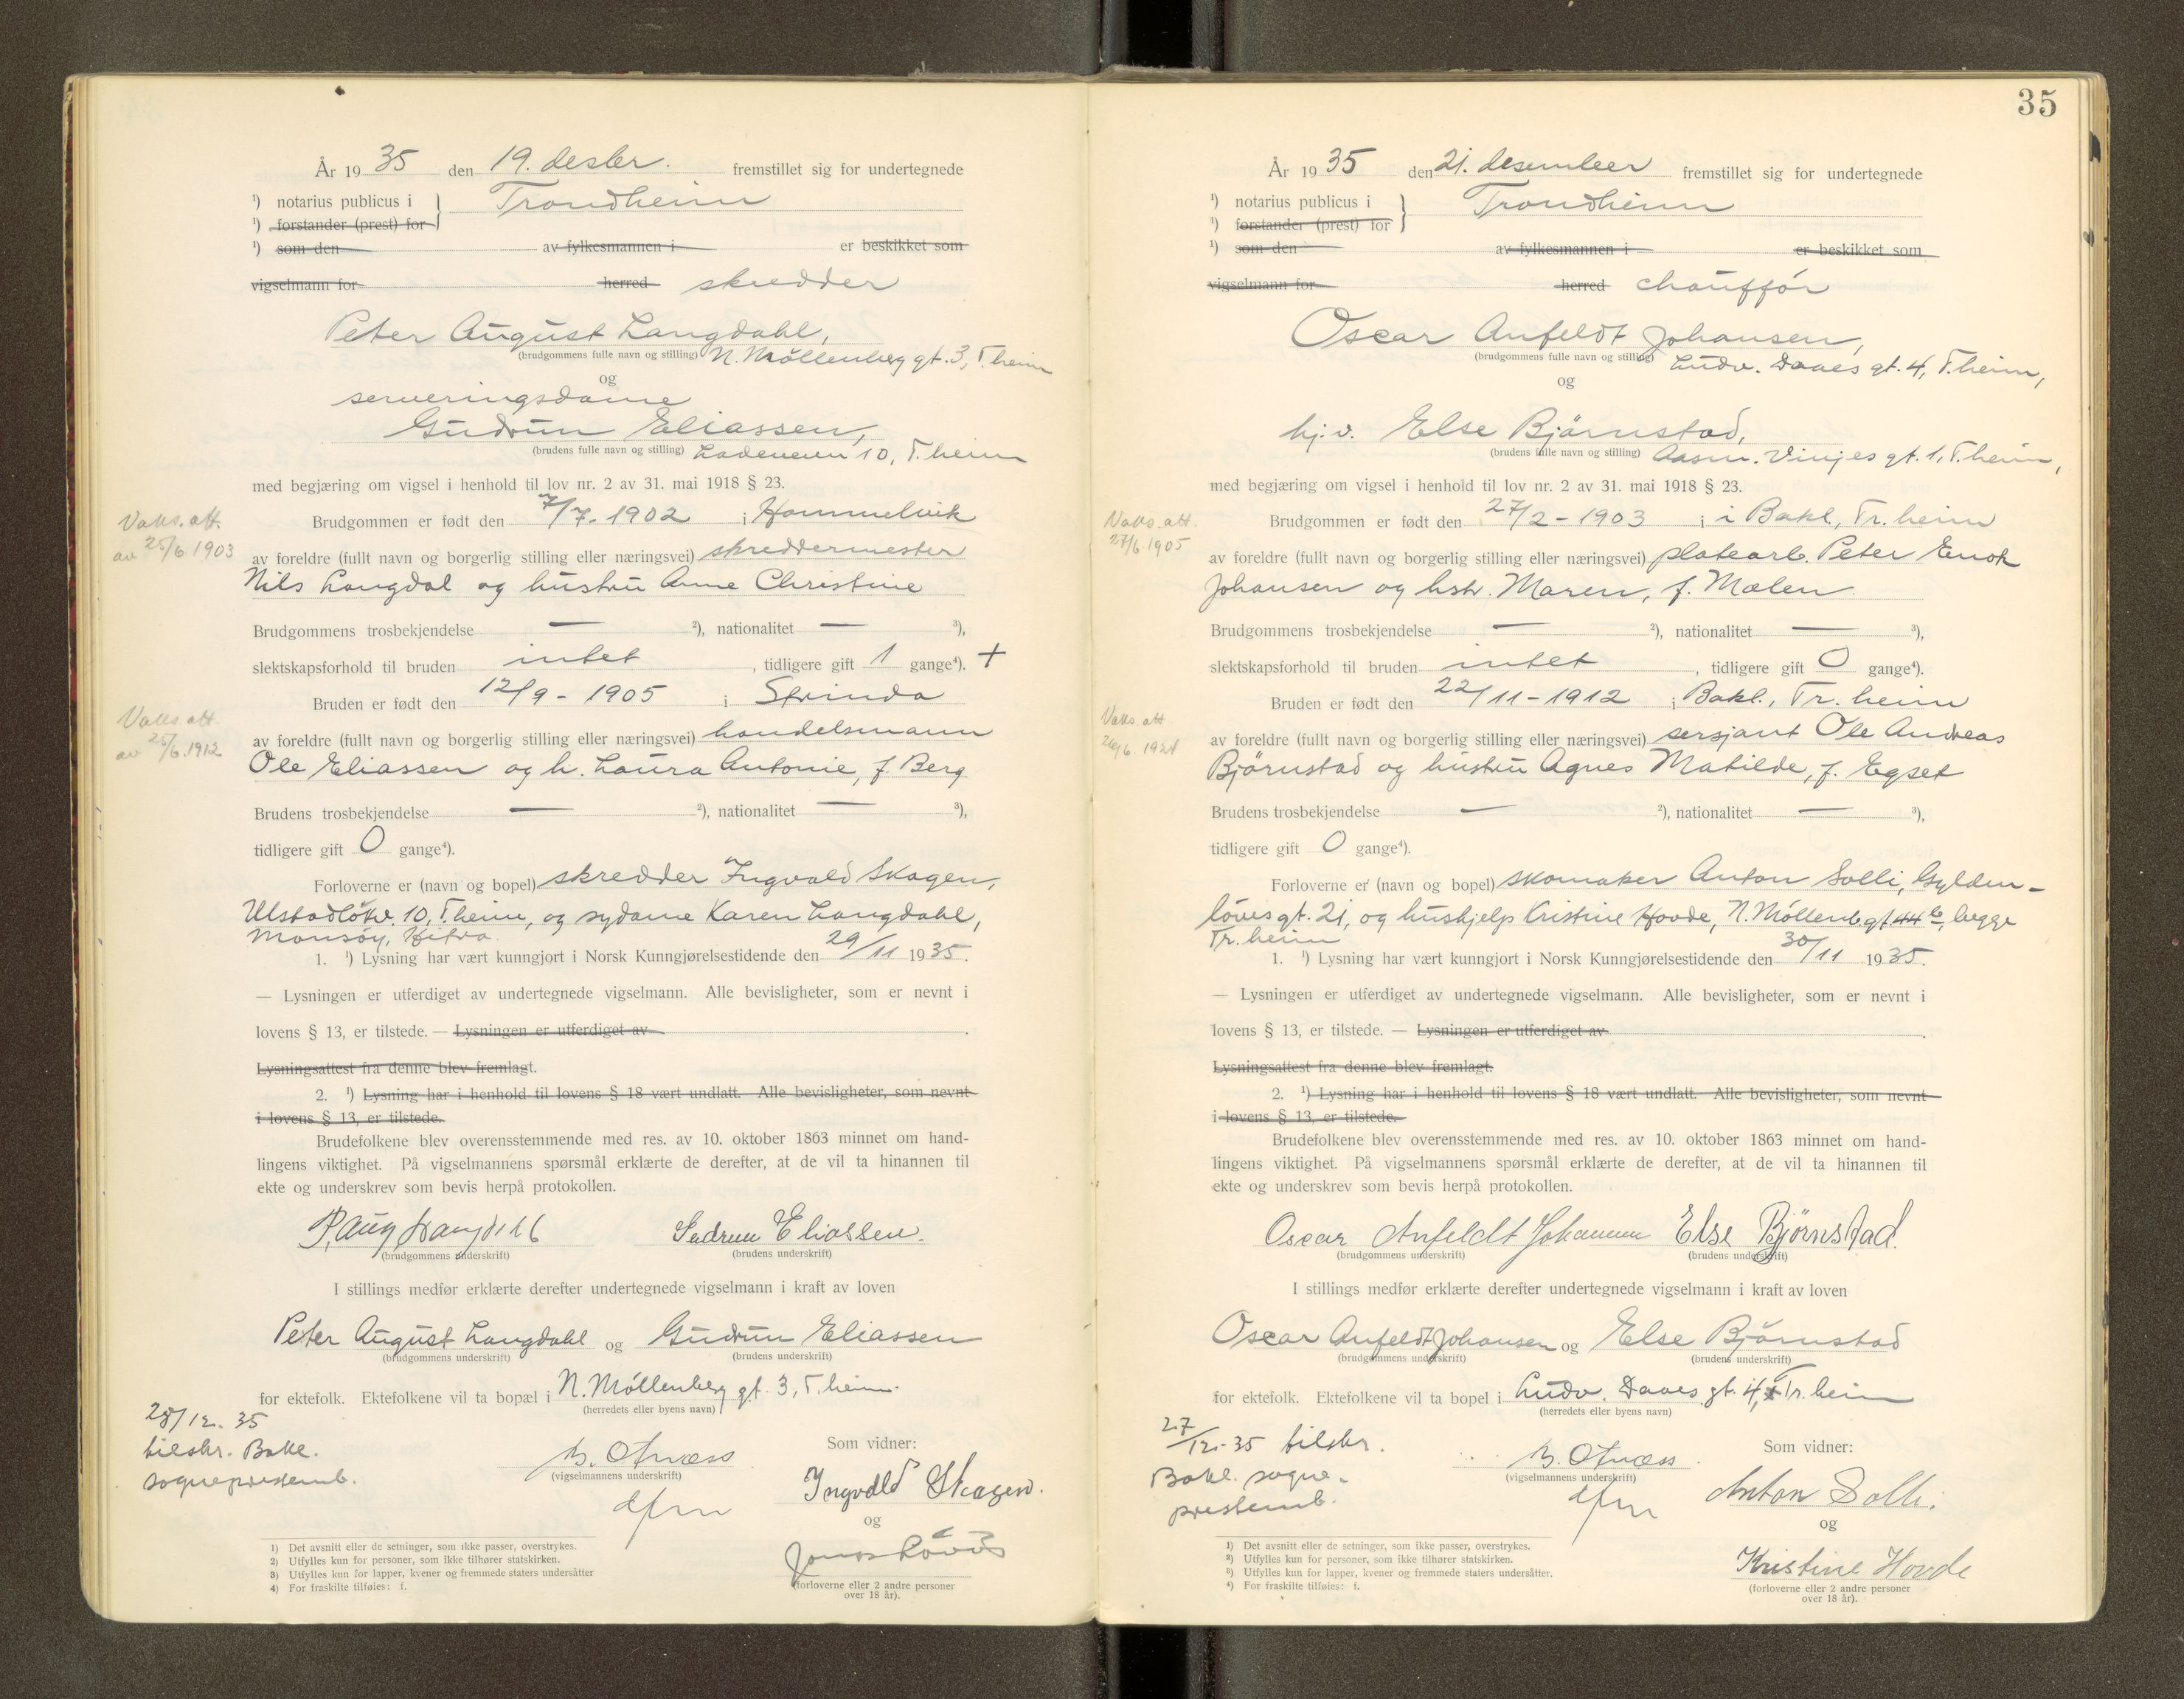 År 1935 den 19. desbr. fremstillet sig for undertegnede
¹) notarius publicus i } Trondheim
¹) forstander (prest) for
¹) som den av fylkesmannen i er beskikket som
vigselmann for herred skredder
Peter August Langdahl,
(brudgommens fulle navn og stilling) N. Möllenberg gt. 3, T.heim
og
serveringsdame
Gudrun Eliassen,
(brudens fulle navn og stilling) Ladeveien 10, T.heim
med begjæring om vigsel i henhold til lov nr. 2 av 31. mai 1918 § 23.
Vaks. att.
av 25/6 1903
Brudgommen er født den 7/7-1902 i Hommelvik
av foreldre (fullt navn og borgerlig stilling eller næringsvei) skreddermester
Nils Langdal og hustru Anne Christine
Brudgommens trosbekjendelse — ²), nationalitet — ³),
slektskapsforhold til bruden intet, tidligere gift 1 gange⁴). +
Bruden er født den 12/9-1905 i Strinda
Vaks. att.
av 25/6.1912
av foreldre (fullt navn og borgerlig stilling eller næringsvei) handelsmann
Ole Eliassen og h. Laura Antonie, f. Berg
Brudens trosbekjendelse — ²), nationalitet — ³),
tidligere gift 0 gange⁴).
Forloverne er (navn og bopel) skredder Ingvald Skagen,
10, T.heim, og sydame Karen Langdahl,
Hitra.
1. ¹) Lysning har vært kunngjort i Norsk Kunngjørelsestidende den 29/11 1935.
— Lysningen er utferdiget av undertegnede vigselmann. Alle bevisligheter, som er nevnt i
lovens § 13, er tilstede. — Lysningen er utferdiget av .
Lysningsattest fra denne blev fremlagt.
2. ¹) Lysning har i henhold til lovens § 18 vært undlatt. Alle bevisligheter, som nevnt
i lovens § 13, er tilstede.
Brudefolkene blev overensstemmende med res. av 10. oktober 1863 minnet om hand-
lingens viktighet. På vigselmannens spørsmål erklærte de derefter, at de vil ta hinannen til
ekte og underskrev som bevis herpå protokollen.
P. Aug Langdahl Gudrun Eliassen.
(brudgommens underskrift) (brudens underskrift)
I stillings medfør erklærte derefter undertegnede vigselmann i kraft av loven
Peter August Langdahl og Gudrun Eliassen
(brudgommens underskrift) (brudens underskrift)
for ektefolk. Ektefolkene vil ta bopæl i N. Möllenberg gt. 3, T.heim.
(herredets eller byens navn)
28/12. 35
tilskr. Bakl.
sogneprestemb.
Som vidner:
(vigselmannens underskrift)
Ingvald Skagen.
og
(forloverne eller 2 andre personer
over 18 år).
1) Det avsnitt eller de setninger, som ikke passer, overstrykes.
2) Utfylles kun for personer, som ikke tilhører statskirken.
3) Utfylles kun for lapper, kvener og fremmede staters undersåtter
4) For fraskilte tilføies: f.
35
År 1935 den 21. desember fremstillet sig for undertegnede
¹) notarius publicus i } Trondheim
¹) forstander (prest) for
¹) som den av fylkesmannen i er beskikket som
vigselmann for herred chaufför
Oscar Anfeldt Johansen,
(brudgommens fulle navn og stilling) Ludv. Daaes gt. 4, T.heim,
og
hj.v. Else Björnstad,
(brudens fulle navn og stilling) Aasm. Vinjes gt. 1, T.heim,
med begjæring om vigsel i henhold til lov nr. 2 av 31. mai 1918 § 23.
Vaks. att.
27/6.1905
Brudgommen er født den 27/2-1903 i i Bakl., Tr.heim
av foreldre (fullt navn og borgerlig stilling eller næringsvei) platearb. Peter Enok
Johansen og hstr. Maren, f. Mælen
Brudgommens trosbekjendelse — ²), nationalitet — ³),
slektskapsforhold til bruden intet, tidligere gift 0 gange⁴).
Bruden er født den 22/11-1912 i Bakl., Tr.heim
Vaks. att
av foreldre (fullt navn og borgerlig stilling eller næringsvei) sersjant Ole Andreas
Björnstad og hustru Agnes Matilde, f. Egset
Brudens trosbekjendelse — ²), nationalitet — ³),
tidligere gift 0 gange⁴).
Forloverne er (navn og bopel) skomaker Anton Solli, Gylden-
löves gt. 21, og hushjelp Kristine Hovde, N. Möllenb.gt 44 b, begge
Tr.heim
1. ¹) Lysning har vært kunngjort i Norsk Kunngjørelsestidende den 30/11 1935.
— Lysningen er utferdiget av undertegnede vigselmann. Alle bevisligheter, som er nevnt i
lovens § 13, er tilstede. — Lysningen er utferdiget av .
Lysningsattest fra denne blev fremlagt.
2. ¹) Lysning har i henhold til lovens § 18 vært undlatt. Alle bevisligheter, som nevnt
i lovens § 13, er tilstede.
Brudefolkene blev overensstemmende med res. av 10. oktober 1863 minnet om hand-
lingens viktighet. På vigselmannens spørsmål erklærte de derefter, at de vil ta hinannen til
ekte og underskrev som bevis herpå protokollen.
Oscar Anfeldt Johansen Else Bjørnstad.
(brudgommens underskrift) (brudens underskrift)
I stillings medfør erklærte derefter undertegnede vigselmann i kraft av loven
Oscar Anfeldt Johansen og Else Björnstad
(brudgommens underskrift) (brudens underskrift)
for ektefolk. Ektefolkene vil ta bopel i Ludv. Daaes gt. 4, Tr.heim
(herredets eller byens navn)
27/12-35 tilskr.
Bakl. sogne-
prestemb.
Som vidner:
(vigselmannens underskrift)
Anton Solli.
og
Kristine Hovde
(forloverne eller 2 andre personer
over 18 år).
¹) Det avsnitt eller de setninger, som ikke passer, overstrykes.
²) Utfylles kun for personer, som ikke tilhører statskirken.
³) Utfylles kun for lapper, kvener og fremmede staters undersåtter.
⁴) For fraskilte tilføies: f.